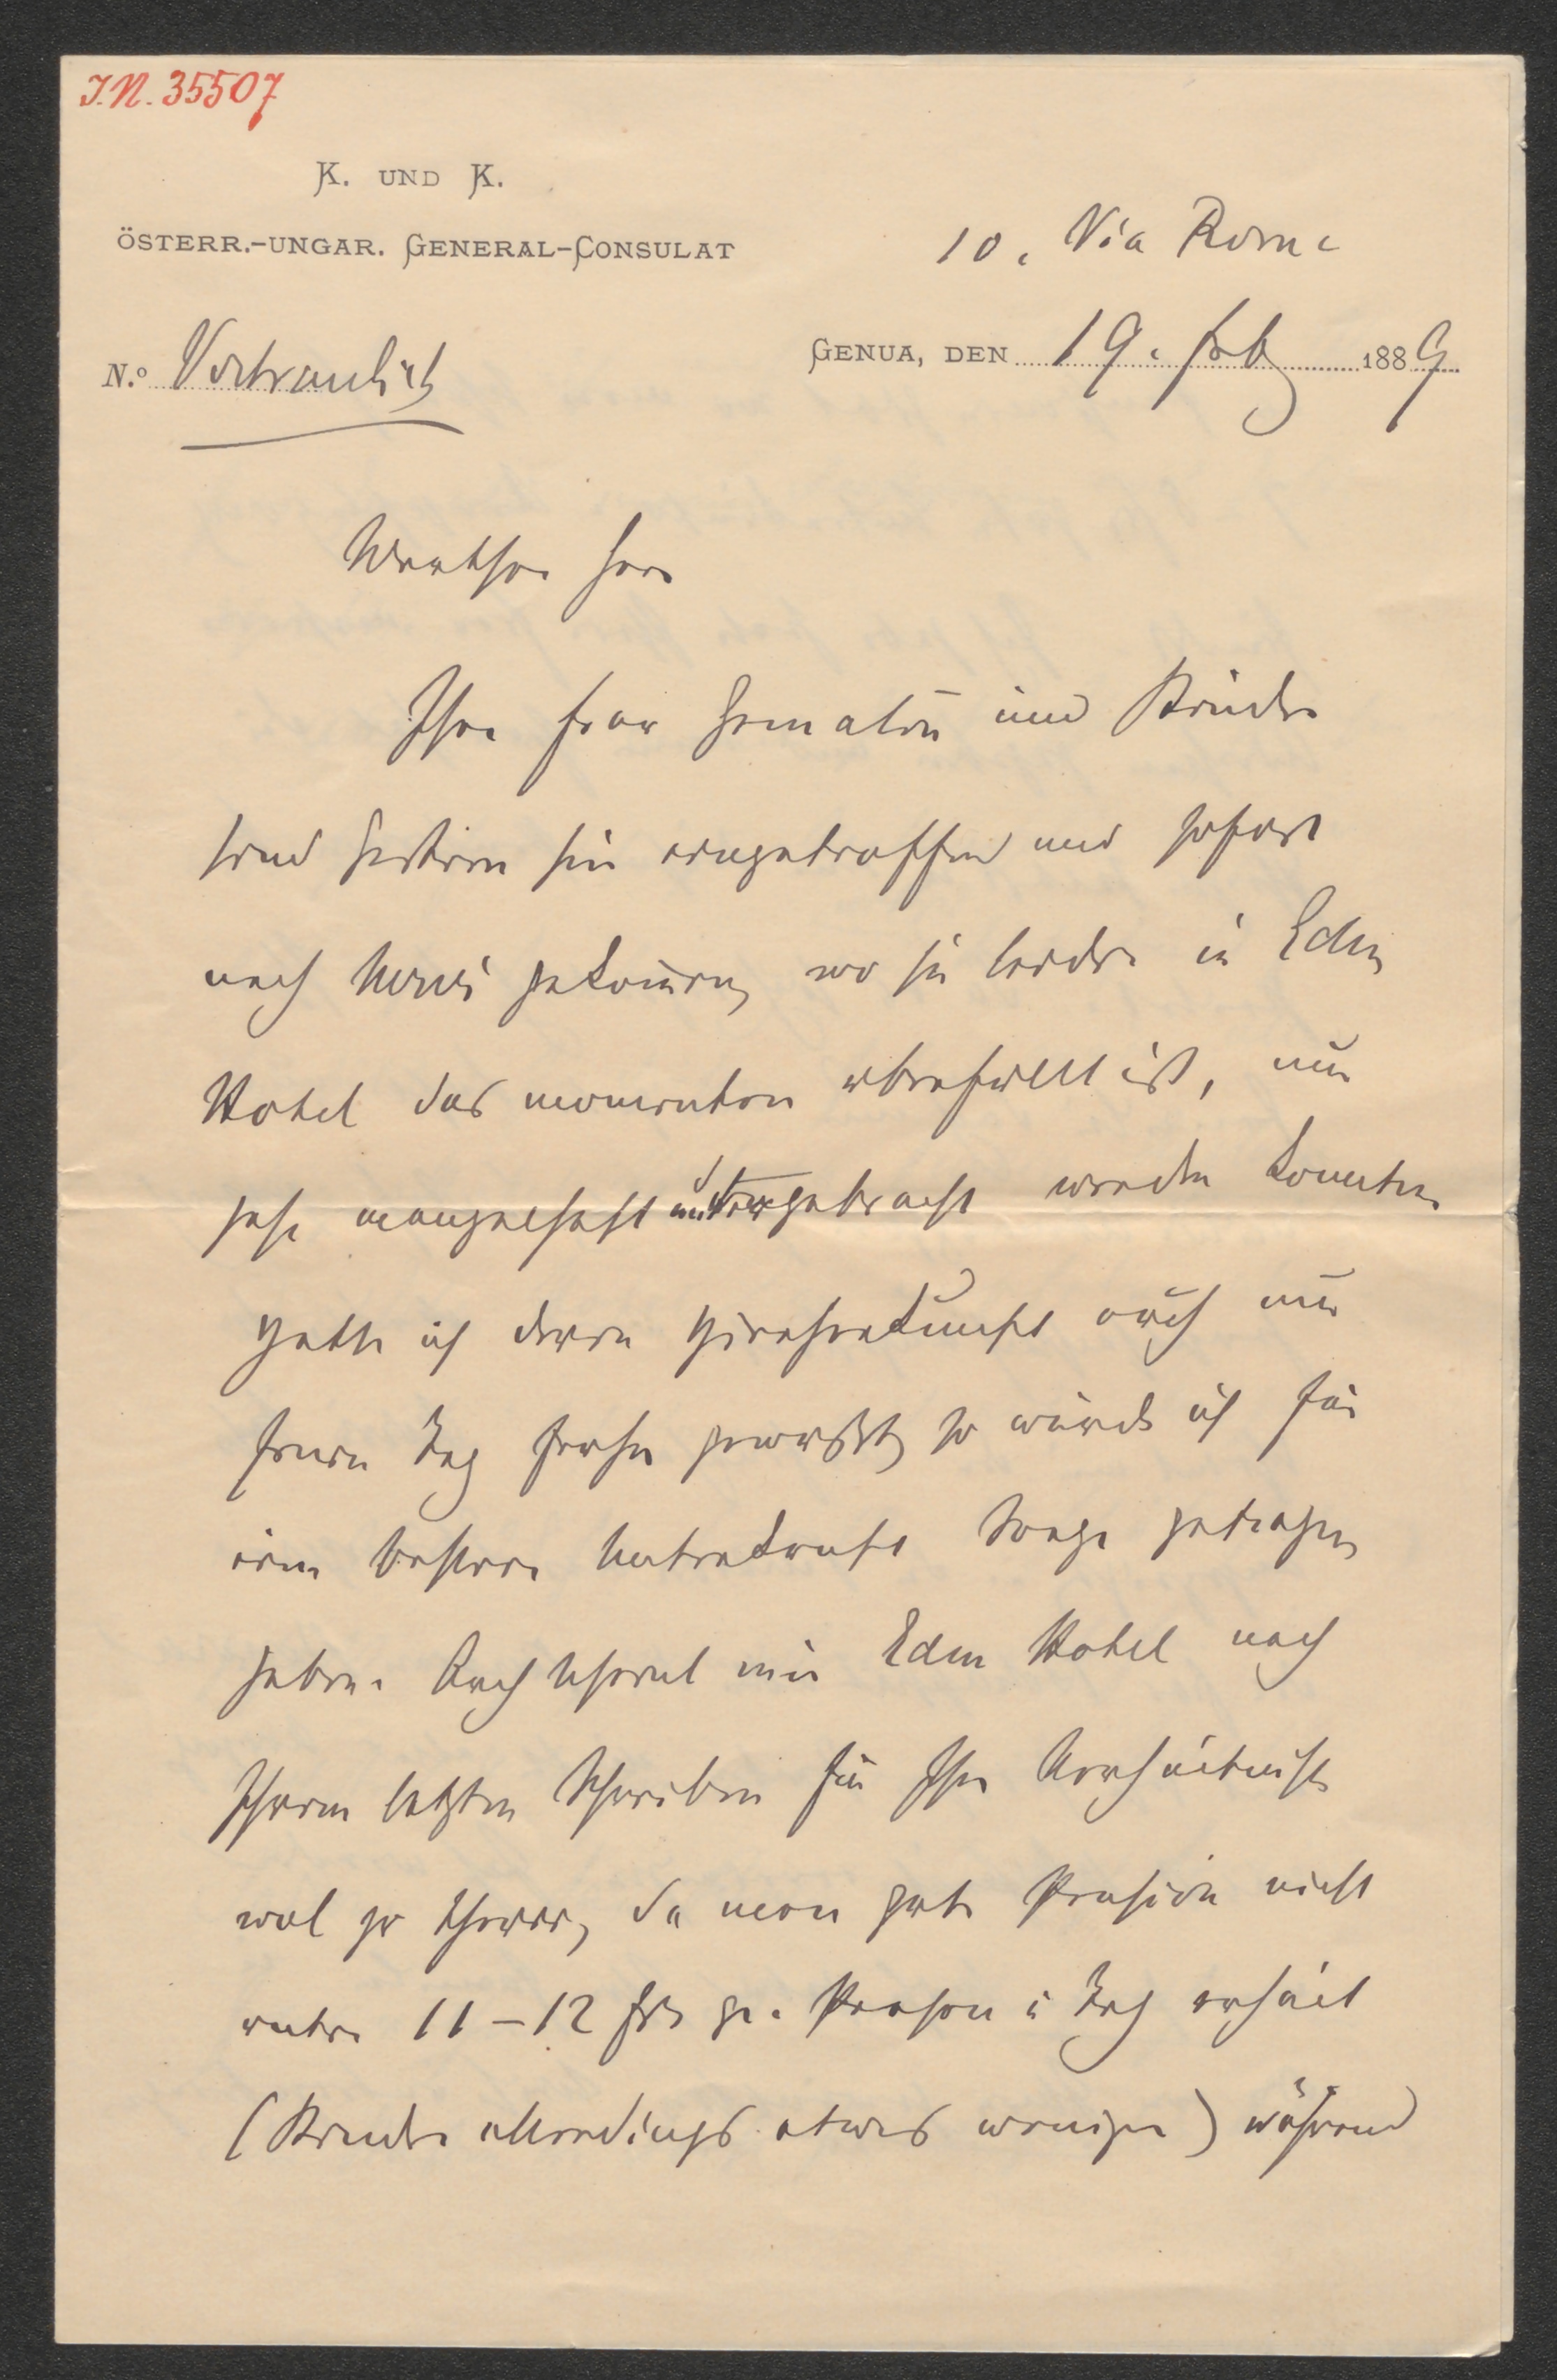 I.N. 35507
K. UND K.
ÖSTERR.-UNGAR. GENERAL-CONSULAT
10. Via Roma
N.º Vertraulich
GENUA, DEN 19. Feb 1889
Werther Herr
Ihre Frau Gemalin und Kinder
sind gestern hier eingetroffen und sofort
nach Nervi gekommen, wo sie leider in Eden
Hotel das momentan überfüllt ist, nur
sehr mangelhaft untergebracht werden konnten
Hätte ich deren Hieherkunft auch nur
einen Tag früher gewußt, so würde ich für
eine bessere Unterkunft Sorge getragen
haben. Auch scheint mir Eden Hotel nach
Ihrem letzten Schreiben für Ihre Verhältnisse
wol zu theuer, da man gute Pension nicht
unter 11–12 frs pr. Person u Tag erhält
(Kinder allerdings etwas weniger) während